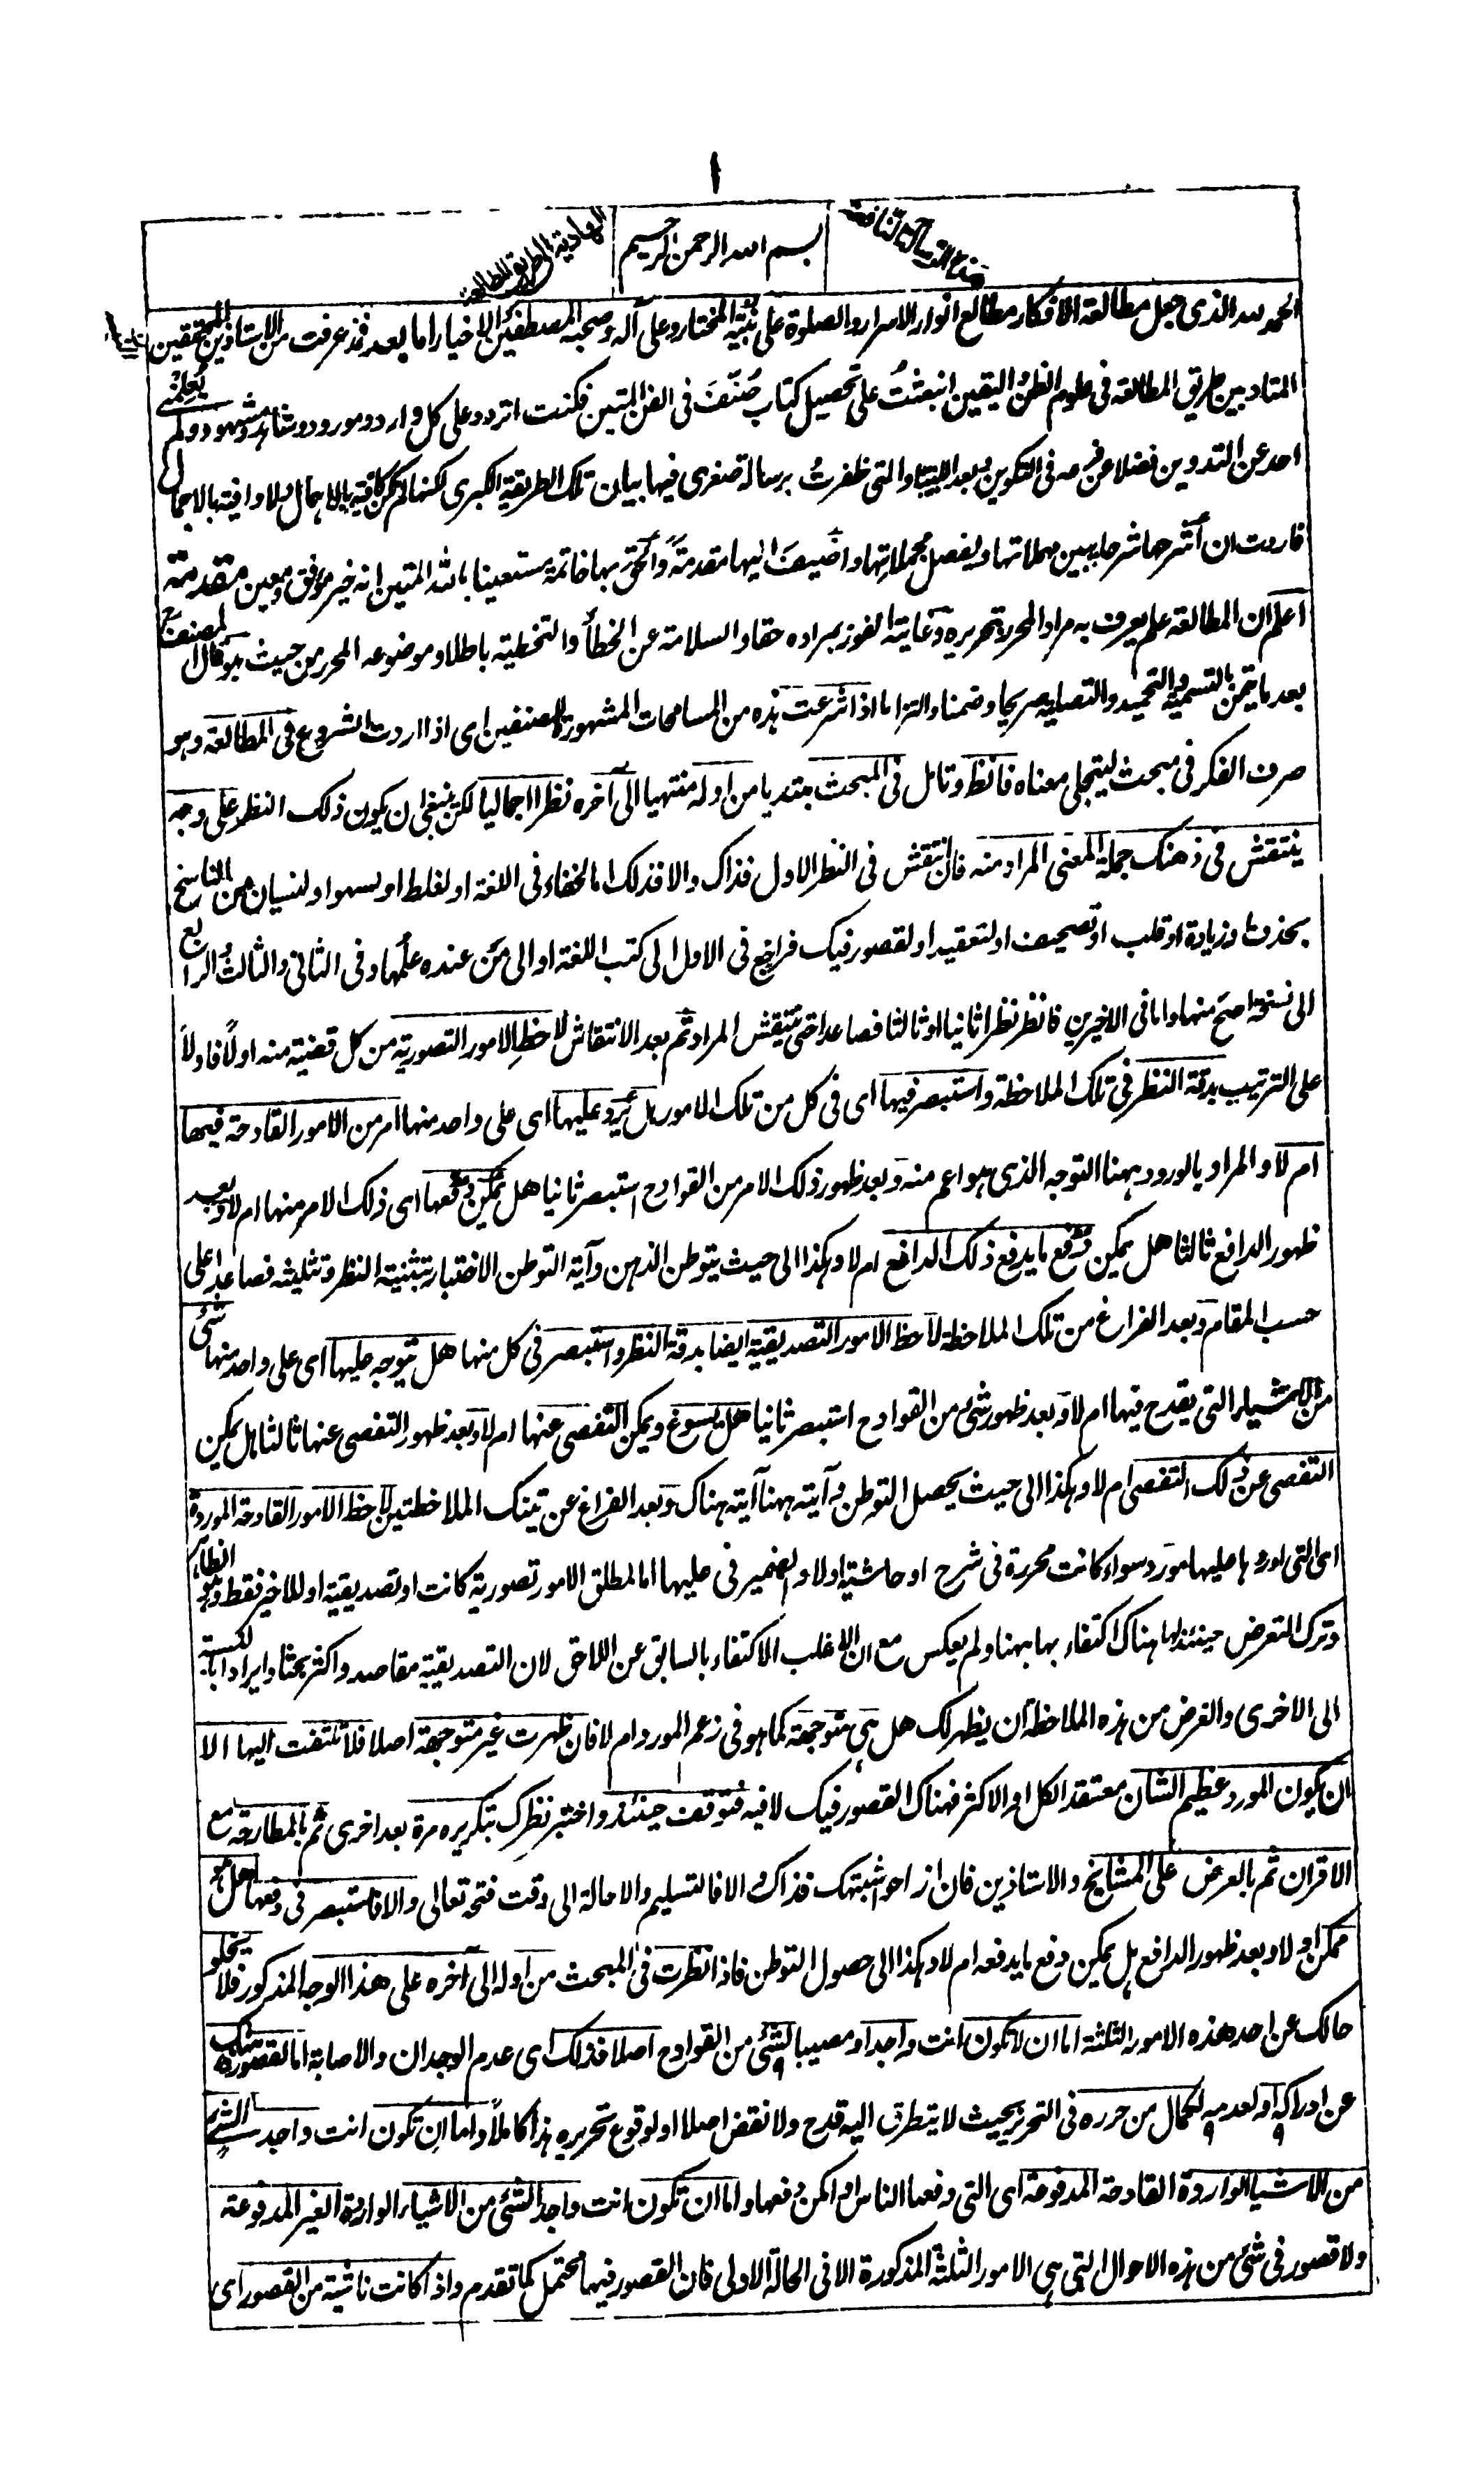 ١
هذا الرسالة نافعة
بسم الله الرحمن الرحيم
الهادية الى طريق المطالعة
الحمد لله الذى جعل مطالعة الافكار مطالع انوار الاسرار والصلوة على نبيه المختار وعلى آله وصحبه المصطفين الاخيار اما بعد فمذ عرفت من الاستاذين المحققين
المتادبين طريق المطالعة فى علوم الظن واليقين انبعثتُ على تحصيل كتاب صُنّفَ فى الفن المتين فكنت اتردد على كل وارد ومورود وشاهد ومشهود ولم يُعلِمْنى
احد عن التدوين فضلا عن فى التكوين وبعد اللتيا والتى ظفرتُ برسالة صغرى فيها بيان تلك الطريقة الكبرى لكنها لم تكن كافية بالاهمال بل لا وافية بالاجمال
فاردت ان أشرحها شرحا يبين مهملاتها ويفصل مجملاتها واضيفَ اليها مقدمةً وألحق بها خاتمة مستعينا بالله المتين انه خير موفق ومعين مقدمة
اعلم ان المطالعة علم يعرف به مراد المحرر بتحريره وغايته الفوز بمراده حقا والسلامة عن الخطأ والتخطية باطلا وموضوعه المحرر من حيث هو قال المصنف
بعد ما تيمّن بالتسمية والتحميد والتصلية صريحا وضمنا والتزاما اذا شرعت هذه من المسامحات المشهورة للمصنفين اى اذا اردت الشروع فى المطالعة وهو
صرف الفكر فى مبحث ليتجلى معناه فانظر وتامل فى المبحث مبتديا من اوله منتهيا الى آخره نظرا اجماليا لكن ينبغى ان يكون ذلك النظر على وجه
ينتقش فى ذهنك جملة المعنى المراد منه فان انتقش فى النظر الاول فذاك والا فذلك اما لخفاء فى اللغة او لغلط او لسهو او لنسيان من الناسخ
بحذف او زيادة او قلب او تصحيف او لتعقيد او لقصور فيك فراجع فى الاول الى كتب اللغة او الى مَن عنده علمُها وفى الثانى والثالث والرابع
الى نسخة اصح منها واما فى الاخيرين فانظر نظرا ثانيا او ثالثا فصاعدا حتى ينتقش المراد ثم بعد الانتقاش لاحظِ الامور التصورية من كل قضية منه اولًا فاولًا
على الترتيب بدقة النظر فى تلك الملاحظة واستبصر فيها اى فى كل من تلك الامور هل يَرِد عليها اى على واحد منها امر من الامور القادحة فيها
ام لا والمراد بالورود ههنا التوجه الذى هو اعم منه وبعد ظهور ذلك الامر من القوادح استبصر ثانيا هل يمكن دفعها اى ذلك الامر منها ام لا وبعد
ظهور الدافع ثالثا هل يمكن دفع ما يدفع ذلك الدافع ام لا وهكذا الى حيث يتوطن الذهن وآية التوطن الاختبار بتثنية النظر وتثليثه فصاعدا على
حسب المقام وبعد الفراغ من تلك الملاحظة لاحظ الامور التصديقية ايضا بدقة النظر واستبصر فى كل منها هل يتوجه عليها اى على واحد منها شئ
من الاشياء التى يقدح فيها ام لا وبعد ظهور شئ من القوادح استبصر ثانيا هل يسوغ ويمكن التفصى عنها ام لا وبعد ظهور التفصى عنها ثالثا هل يمكن
التفصى عن ذلك التفصى ام لا وهكذا الى حيث يحصل التوطن وآيته ههنا آيته هناك وبعد الفراغ عن تينك الملاحظتين لاحظ الامور القادحة الموردة
اى التى اوردها عليها مورد سواء كانت محررة فى شرح او حاشية اولا والضمير فى عليها اما لمطلق الامور تصورية كانت او تصديقية او للاخير فقط وهو الظاهر
وترك التعرض حينئذ لها هناك اكتفاء بها ههنا ولم يعكس مع ان الاغلب الاكتفاء بالسابق عن اللاحق لان التصديقية مقاصد واكثر بحثا وايرادا بالنسبة
الى الاخرى والغرض من هذه الملاحظة ان يظهر لك هل هى متوجهة كما هو فى زعم المورد ام لا فان ظهرت غير متوجهة اصلا فلا تلتفت اليها الا
ان يكون المورد عظيم الشان معتقد الكل او الاكثر فهناك القصور فيك لا فيه فتوقف حينئذ واختبر نظرك بتكريره مرة بعد اخرى ثم بالمطارحة مع
الاقران ثم بالعرض على المشايخ والاستاذين فان ازاحوا شبهتك فذاك والا فالتسليم والاحالة الى وقت فتحه تعالى والا فاستبصر فى دفعها هل هو
ممكن اولا وبعد ظهور الدافع هل يمكن دفع ما يدفعه ام لا وهكذا الى حصول التوطن فاذا نظرت فى المبحث من اوله الى آخره على هذا الوجه المذكور فلا يخلو
حالك عن احد هذه الامور الثلثة اما ان لا تكون انت واجدا ومصيبا لشئ من القوادح اصلا فذلك اى عدم الوجدان والاصابة اما لقصور منك
عن ادراكه او لعدمه لكمال من حرره فى التحرير بحيث لا يتطرق اليه قدح ولا نقض اصلا او لوقوع تحريره هذا كاملاً واما ان تكون انت واجد الشئ
من الاشياء الواردة القادحة المدفوعة اى التى دفعها الناس او امكن دفعها واما ان تكون انت واجد الشئ من الاشياء الواردة الغير المدفوعة
ولا قصور فى شئ من هذه الاحوال التى هى الامور الثلثة المذكورة الا فى الحالة الاولى فان القصور فيها محتمل كما تقدم واذا كانت ناشية من القصور اى